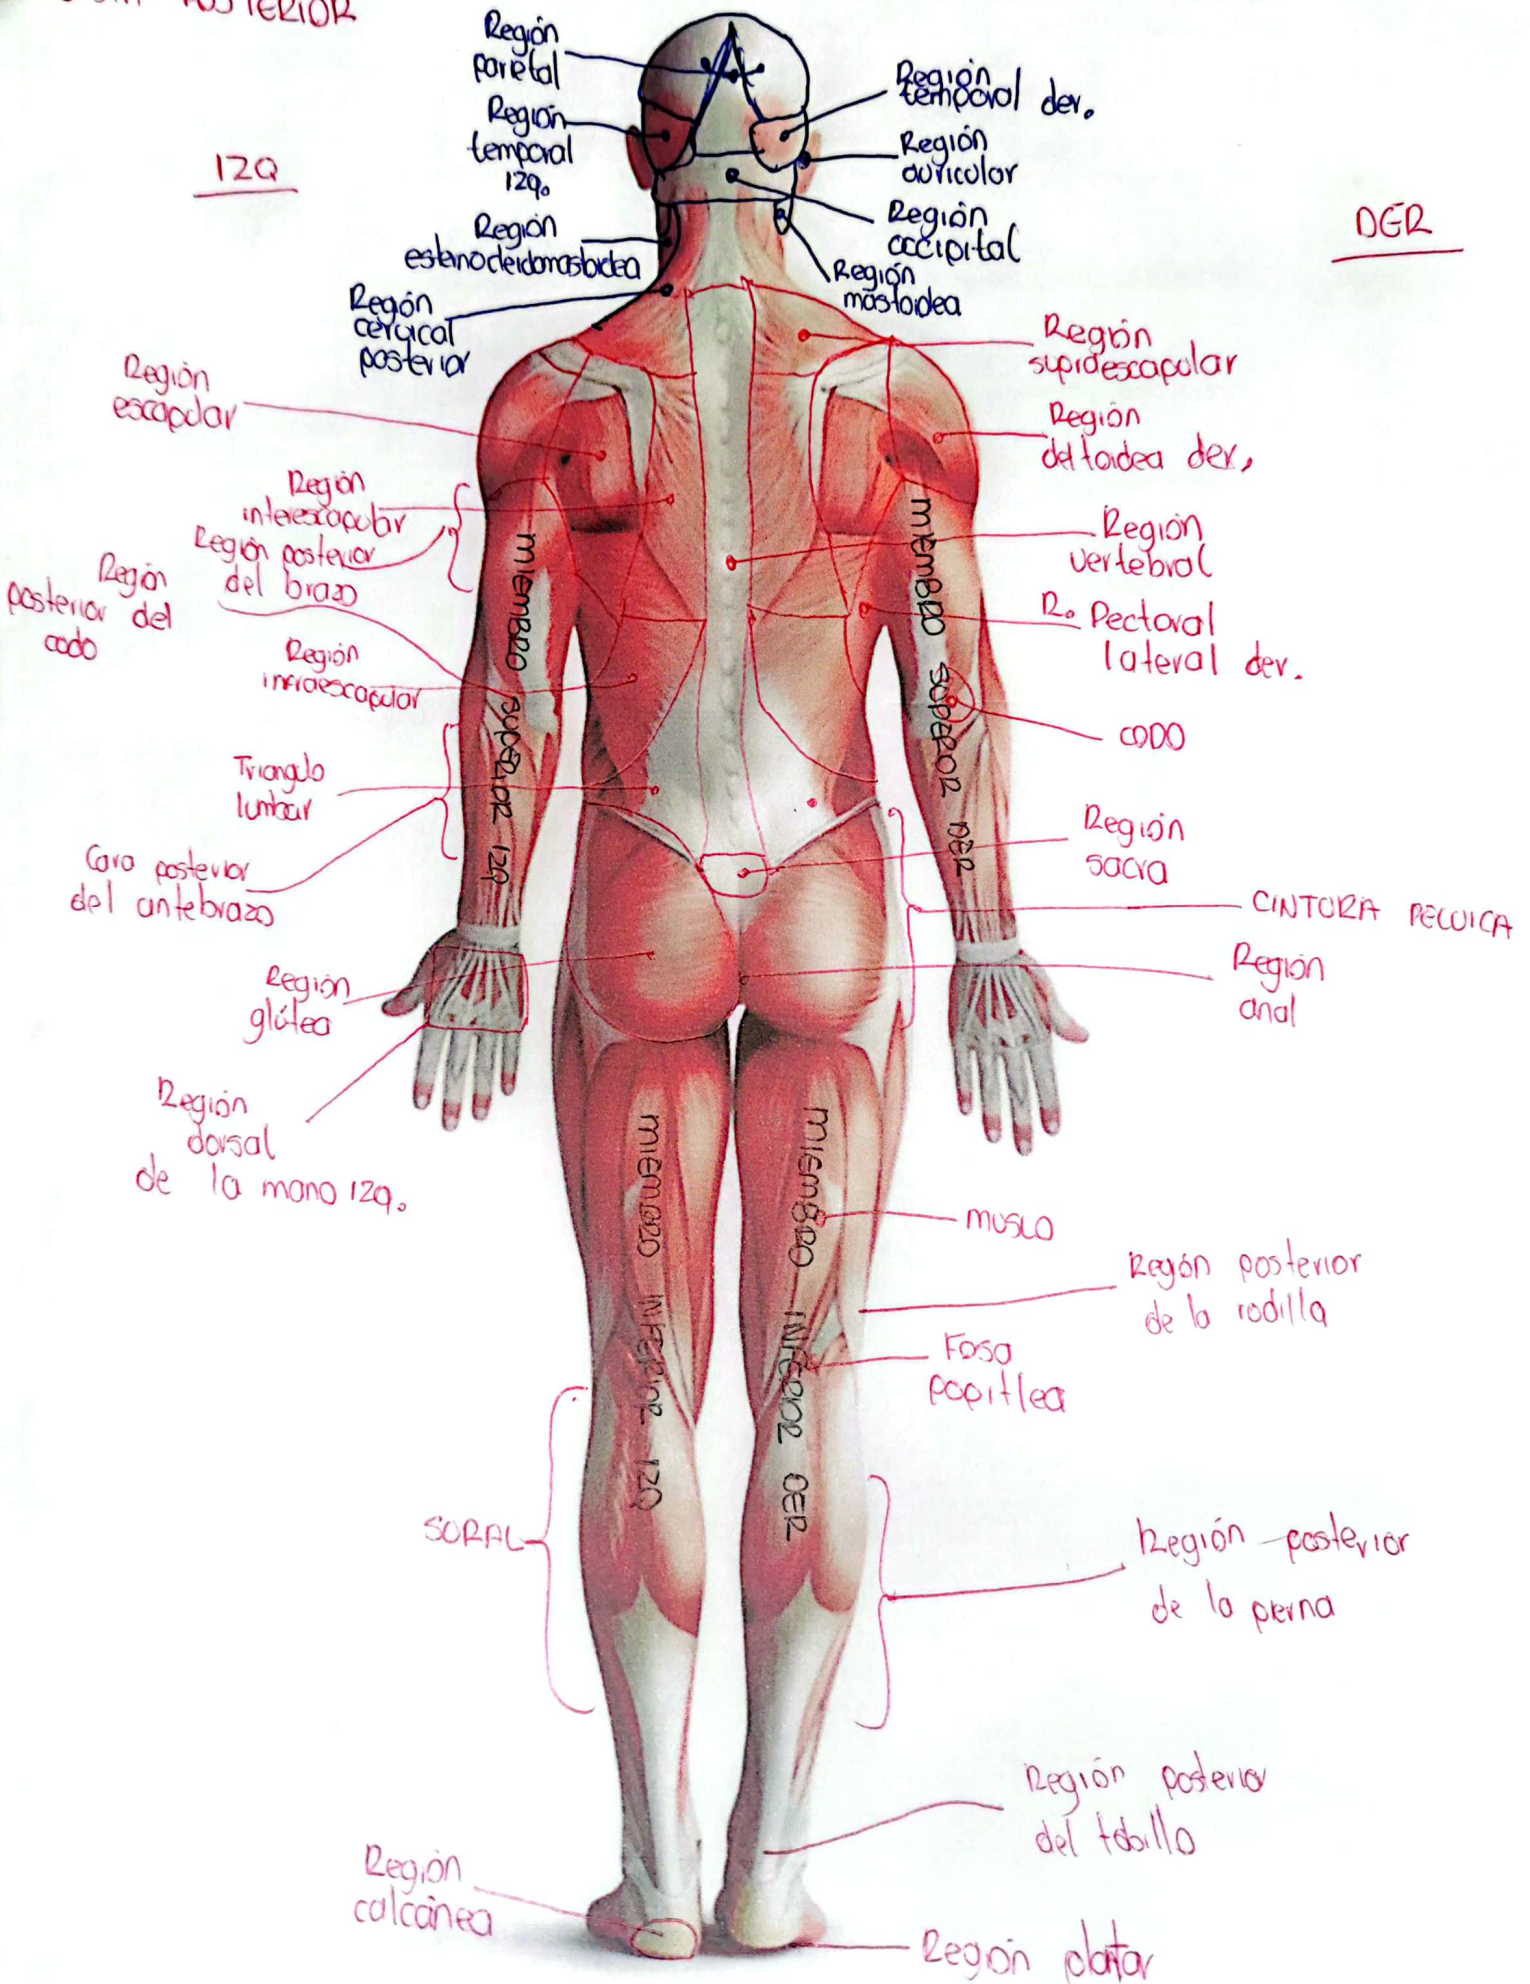 POSTERIOR
IZQ
DER
Región
parietal
Región
temporal
izq.
Región
esternocleidomastoidea
Región
cervical
posterior
Región
temporal der.
Región
auricular
Región
occipital
Región
mastoidea
Región
escapular
Región
interescapular
Región posterior
del brazo
Región
posterior del
codo
Región
infraescapular
Triangulo
lumbar
Cara posterior
del antebrazo
Región
glútea
Región
dorsal
de la mano izq.
Región
supraescapular
Región
deltoidea der.
Región
vertebral
R. Pectoral
lateral der.
CODO
Región
sacra
CINTURA PELVICA
Región
anal
MIEMBRO SUPERIOR IZQ
MIEMBRO SUPERIOR DER
MIEMBRO INFERIOR IZQ
MIEMBRO INFERIOR DER
MUSLO
Región posterior
de la rodilla
Fosa
popitlea
SURAL
Región posterior
de la pierna
Región posterior
del tobillo
Región
calcánea
Región plantar